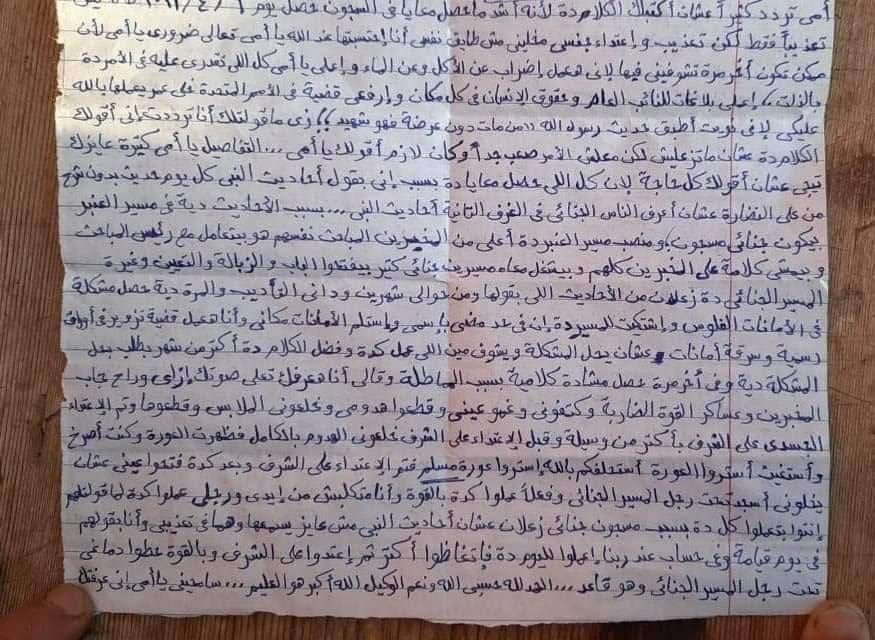 أمى تردد كثيراً عشان أكتبلك الكلام دة لأنه أشد ما حصل معايا فى السجون حصل يوم
تعذيباً فقط لكن تعذيب وإعتداء جنسى مخلينى مش طايق نفسى أنا إحتسبتها عند الله يا أمى تعالى ضرورى يا أمى لأن
ممكن تكون أخر مرة تشوفينى فيها لإنى هعمل إضراب عن الأكل وعن الماء وإعلى يا أمى كل اللى تقدرى عليه فى الأمر دة
بالذات،، إعلى بلاغات للنائب العام وحقوق الإنسان فى كل مكان وإرفعى قضية فى الأمم المتحدة على عملها بالله
عليكى لإنى نويت أطبق حديث رسول الله "من مات دون عرضة فهو شهيد" زى ما قولتلك أنا ترددت إنى أقولك
الكلام دة عشان ماتزعليش لكن معلش الأمر صعب جداً وكان لازم أقولك يا أمى ... التفاصيل يا أمى كتيرة عايزك
تيجى عشان أقولك كل حاجة لإن كل اللى حصل معايا دة بسبب إنى بقول أحاديث النبى كل يوم حديث بدون شرح
من على النضارة عشان أعرف الناس الجنائى فى الغرف التانية أحاديث النبى ... بسبب الأحاديث دية فى مسير العنبر
بيكون جنائى مسجون، ومنصب مسير العنبر دة أعلى من المخبرين المباحث نفسهم هو بيتعامل مع رئيس المباحث
وبيمشى كلامة على المخبرين كلهم وبيشتغل معاه مسيرين جنائى كتير بيفتحوا الباب والزبالة والتعيين وغيرة
المسير الجنائى دة زعلان من الأحاديث اللى بقولها ومن حوالى شهرين ودانى التأديب والمرة دية حصل مشكلة
فى الأمانات الفلوس وإشتكيت للمسير دة إن فى حد مضى بإسمى وإستلم الأمانات مكانى وأنا هعمل قضية تزوير فى أوراق
رسمية وسرقة أمانات عشان يحل المشكلة ويشوف مين اللى عمل كدة وفضل الكلام دة أكتر من شهر بطلب بحل
المشكلة دية وفى أخر مرة حصل مشادة كلامية بسبب المماطلة وقالى أنا هعرفك تعلى صوتك إزاى وراح جاب
المخبرين وعساكر القوة الضاربة وكتفونى وغمو عينى وقطعوا هدومى وخلعونى الملابس وقطعوها وتم الإعتداء
الجسدى على الشرف بأكتر من وسيلة وقبل الإعتداء على الشرف خلعونى الهدوم بالكامل فظهرت العورة وكنت أصرخ
وأستغيث أستروا العورة أستحلفكم بالله إستروا عورة مسلم فتم الإعتداء على الشرف وبعد كدة فتحوا عينى عشان
يخلونى أسجد تحت رجل المسير الجنائى وفعلاً عملوا كدة بالقوة وأنا متكلبش من إيدى ورجلى عملوا كدة لما قولتلهم
إنتوا بتعملوا كل دة بسبب مسجون جنائى زعلان عشان أحاديث النبى مش عايز يسمعها وهما فى تعذيبى وأنا بقولهم
فى يوم قيامة وفى حساب عند ربنا إعملوا لليوم دة فإتغاظوا أكتر ثم إعتدوا على الشرف وبالقوة حطوا دماغى
تحت رجل المسير الجنائى وهو قاعد ... الحمد لله حسبى الله ونعم الوكيل الله أكبر هو العليم ... سامحينى يا أمى إنى عرفتك